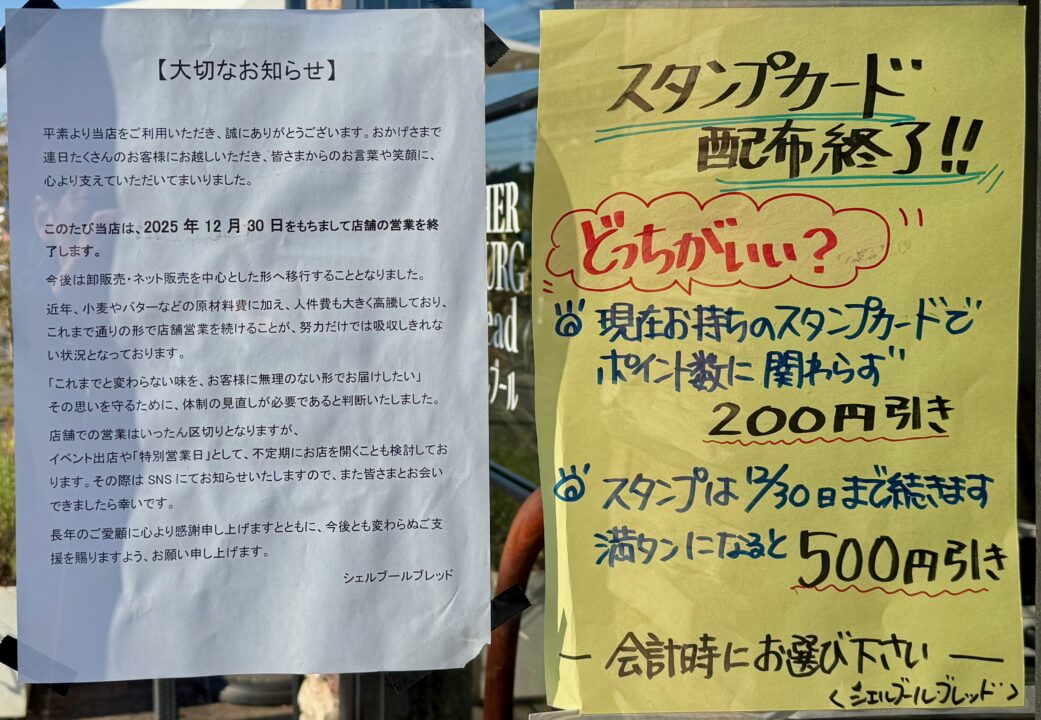 【大切なお知らせ】
平素より当店をご利用いただき、誠にありがとうございます。おかげさまで
連日たくさんのお客様にお越しいただき、皆さまからのお言葉や笑顔に、
心より支えていただいてまいりました。
このたび当店は、2025 年 12 月 30 日をもちまして店舗の営業を終
了します。
今後は卸販売・ネット販売を中心とした形へ移行することとなりました。
近年、小麦やバターなどの原材料費に加え、人件費も大きく高騰しており、
これまで通りの形で店舗営業を続けることが、努力だけでは吸収しきれな
い状況となっております。
「これまでと変わらない味を、お客様に無理のない形でお届けしたい」
その思いを守るために、体制の見直しが必要であると判断いたしました。
店舗での営業はいったん区切りとなりますが、
イベント出店や「特別営業日」として、不定期にお店を開くことも検討してお
ります。その際は SNS にてお知らせいたしますので、また皆さまとお会い
できましたら幸いです。
長年のご愛顧に心より感謝申し上げますとともに、今後とも変わらぬご支
援を賜りますよう、お願い申し上げます。
シェルブールブレッド
HER
URG
ead
ブール
スタンプカード
配布終了!!
どっちがいい?
現在お持ちのスタンプカードで
ポイント数に関わらず
200円引き
スタンプは12/30日まで続きます
満タンになると500円引き
会計時にお選び下さい
<シェルブールブレッド>